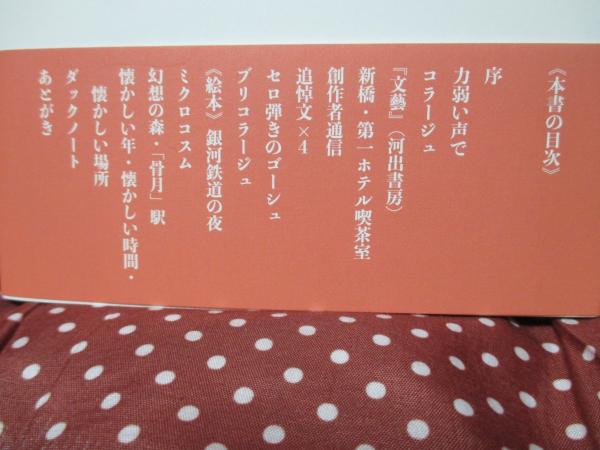 《本書の目次》
序
力弱い声で
コラージュ
『文藝』（河出書房）
新橋・第一ホテル喫茶室
創作者通信
追悼文×4
セロ弾きのゴーシュ
ブリコラージュ
《絵本》 銀河鉄道の夜
ミクロコスム
幻想の森・「骨月」駅
懐かしい年・懐かしい時間・
懐かしい場所
ダックノート
あとがき